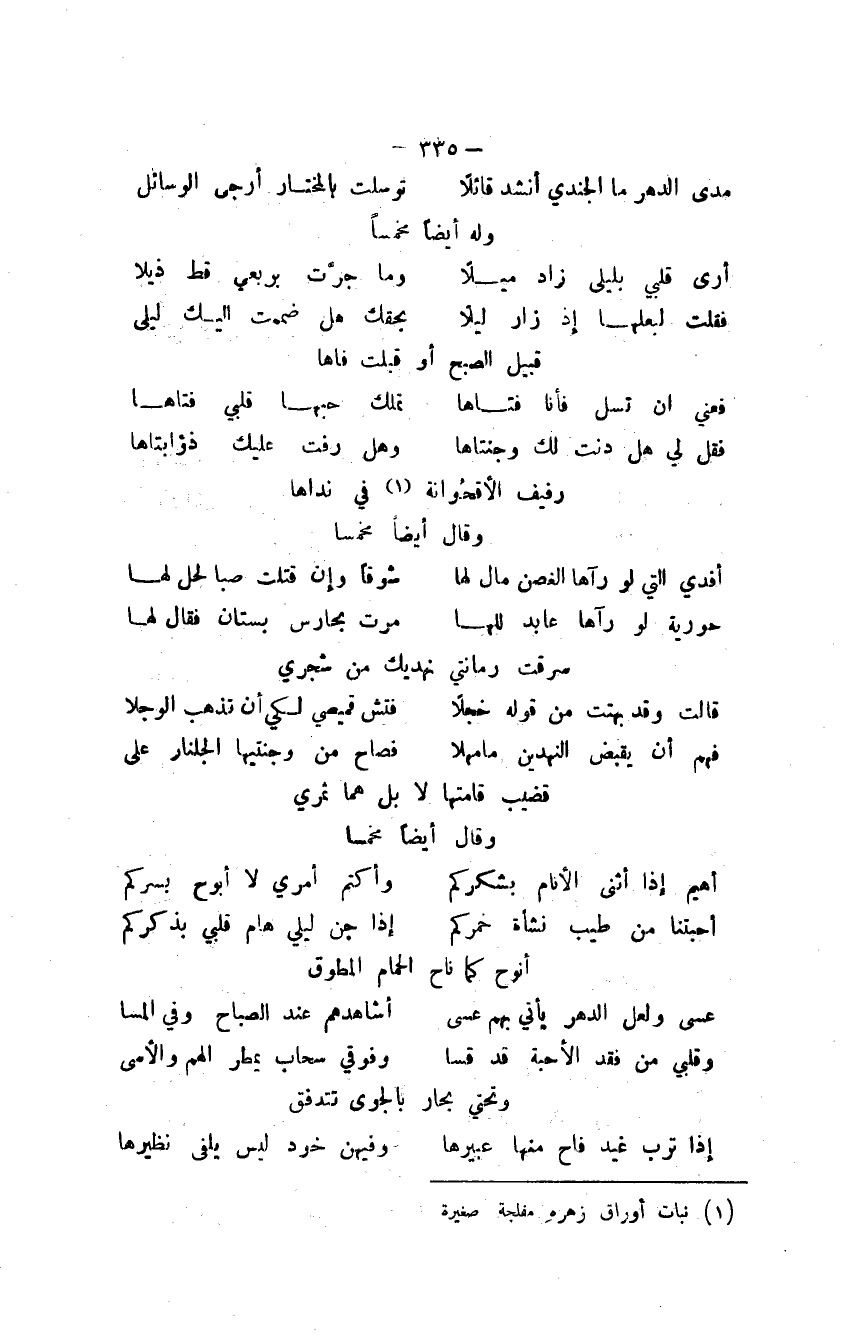 — ٣٣٥ —
مدى الدهر ما الجندي أنشد قائلًا توسلت بالمختـار أرجى الوسائل
وله أيضاً مخمساً
أرى قلبي بليلى زاد ميـــلًا وما جرّت بربعي قط ذيلا
فقلت لبعلهـــا إذ زار ليلًا بحقك هل ضممت اليـك ليلى
قبيل الصبح أو قبلت فاها
فعني ان تسل فأنا فتـــاها تملك حبهـــا قلبي فتاهـــا
فقل لي هل دنت لك وجنتاها وهل رفت عليك ذؤابتاها
رفيف الأقحُوانة (١) في نداها
وقال أيضاً مخمسا
أفدي التي لو رآها الغصن مال لها شوقاً وإن قتلت صبا لحل لهـــا
حورية لو رآها عابد للهـــا مرت بحارس بستان فقال لهـا
سرقت رمانتي نهديك من شجري
قالت وقد بهتت من قوله خجلًا فتش قميصي لـكي أن تذهب الوجلا
فهم أن يقبض النهدين مامهلا فصاح من وجنتيها الجلنار على
قضيب قامتها لا بل هما ثمري
وقال أيضاً مخمسا
أهيم إذا أثنى الأنام بشكركم وأكتم أمري لا أبوح بسركم
أحبتنا من طيب نشأة خمركم إذا جن ليلي هام قلبي بذكركم
أنوح كما ناح الحمام المطوق
عسى ولعل الدهر يأتي بهم عسى أشاهدهم عند الصباح وفي المسا
وقلبي من فقد الأحبة قد قسا وفوقي سحاب يمطر الهم والأسى
وتحتي بحار بالجوى تتدفق
إذا ترب غيد فاح منها عبيرها وفيهن خود ليس يلفى نظيرها
(١) نبات أوراق زهرهِ مفلجة صغيرة